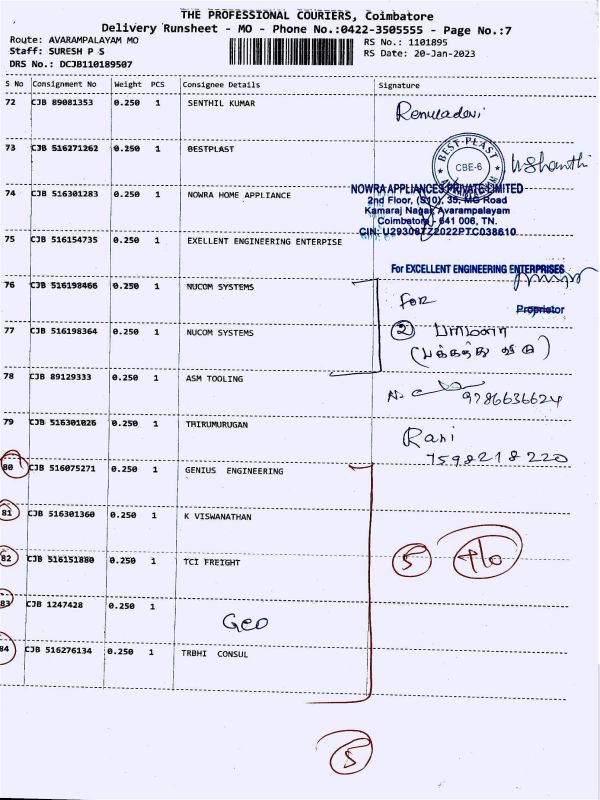 THE PROFESSIONAL COURIERS, Coimbatore
Delivery Runsheet - MO - Phone No.:0422-3505555 - Page No.:7
Route: AVARAMPALAYAM MO
Staff: SURESH P S
DRS No.: DCJB110189507
RS No.: 1101895
RS Date: 20-Jan-2023
S No Consignment No Weight PCS Consignee Details Signature
72 CJB 89081353 0.250 1 SENTHIL KUMAR Renuladevi
73 CJB 516271262 0.250 1 BESTPLAST
BEST-PLAST
CBE-6
74 CJB 516301283 0.250 1 NOWRA HOME APPLIANCE
NOWRA APPLIANCES PRIVATE LIMITED
2nd Floor, (S10), 35, MG Road
Kamaraj Nagar, Avarampalayam
Coimbatore - 641 006, TN.
CIN: U29308TZ2022PTC038610
75 CJB 516154735 0.250 1 EXELLENT ENGINEERING ENTERPISE
For EXCELLENT ENGINEERING ENTERPRISES
Proprietor
76 CJB 516198466 0.250 1 NUCOM SYSTEMS
For
77 CJB 516198364 0.250 1 NUCOM SYSTEMS
2
(பக்கத்து வீடு)
78 CJB 89129333 0.250 1 ASM TOOLING
9786636624
79 CJB 516301026 0.250 1 THIRUMURUGAN
Rani
7598218220
80 CJB 516075271 0.250 1 GENIUS ENGINEERING
81 CJB 516301360 0.250 1 K VISWANATHAN
82 CJB 516151880 0.250 1 TCI FREIGHT
5
83 CJB 1247428 0.250 1
Geo
84 CJB 516276134 0.250 1 TRBHI CONSUL
5